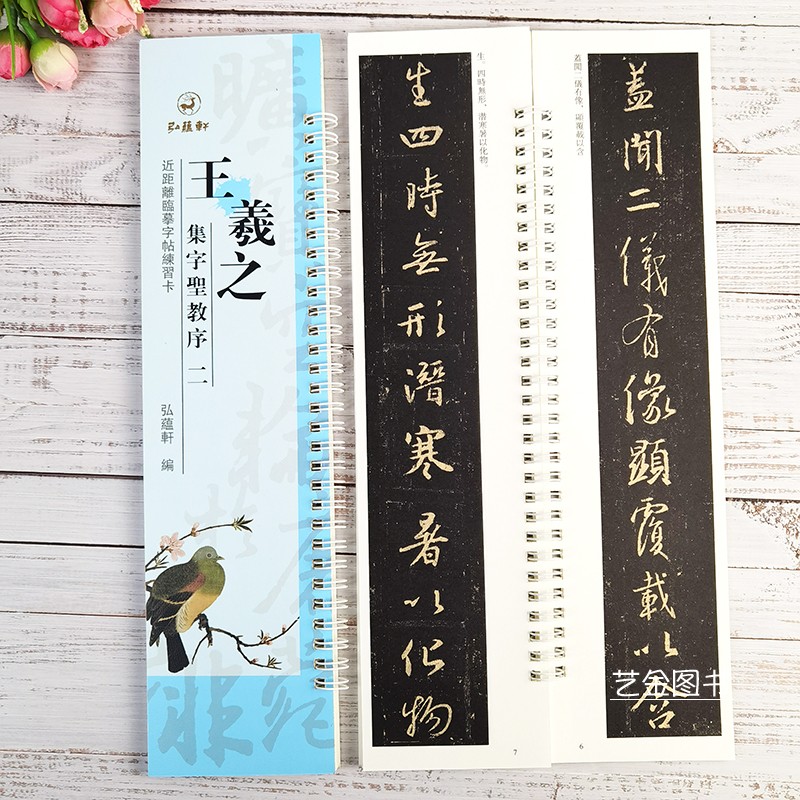 弘蘊軒
王羲之
集字聖教序 二
近距離臨摹字帖練習卡
弘蘊軒 編
蓋聞二儀有像顯覆載以含
蓋聞二儀有像，顯覆載以含
6
生四時無形潛寒暑以化物
生；四時無形，潛寒暑以化物。
7
艺金图书